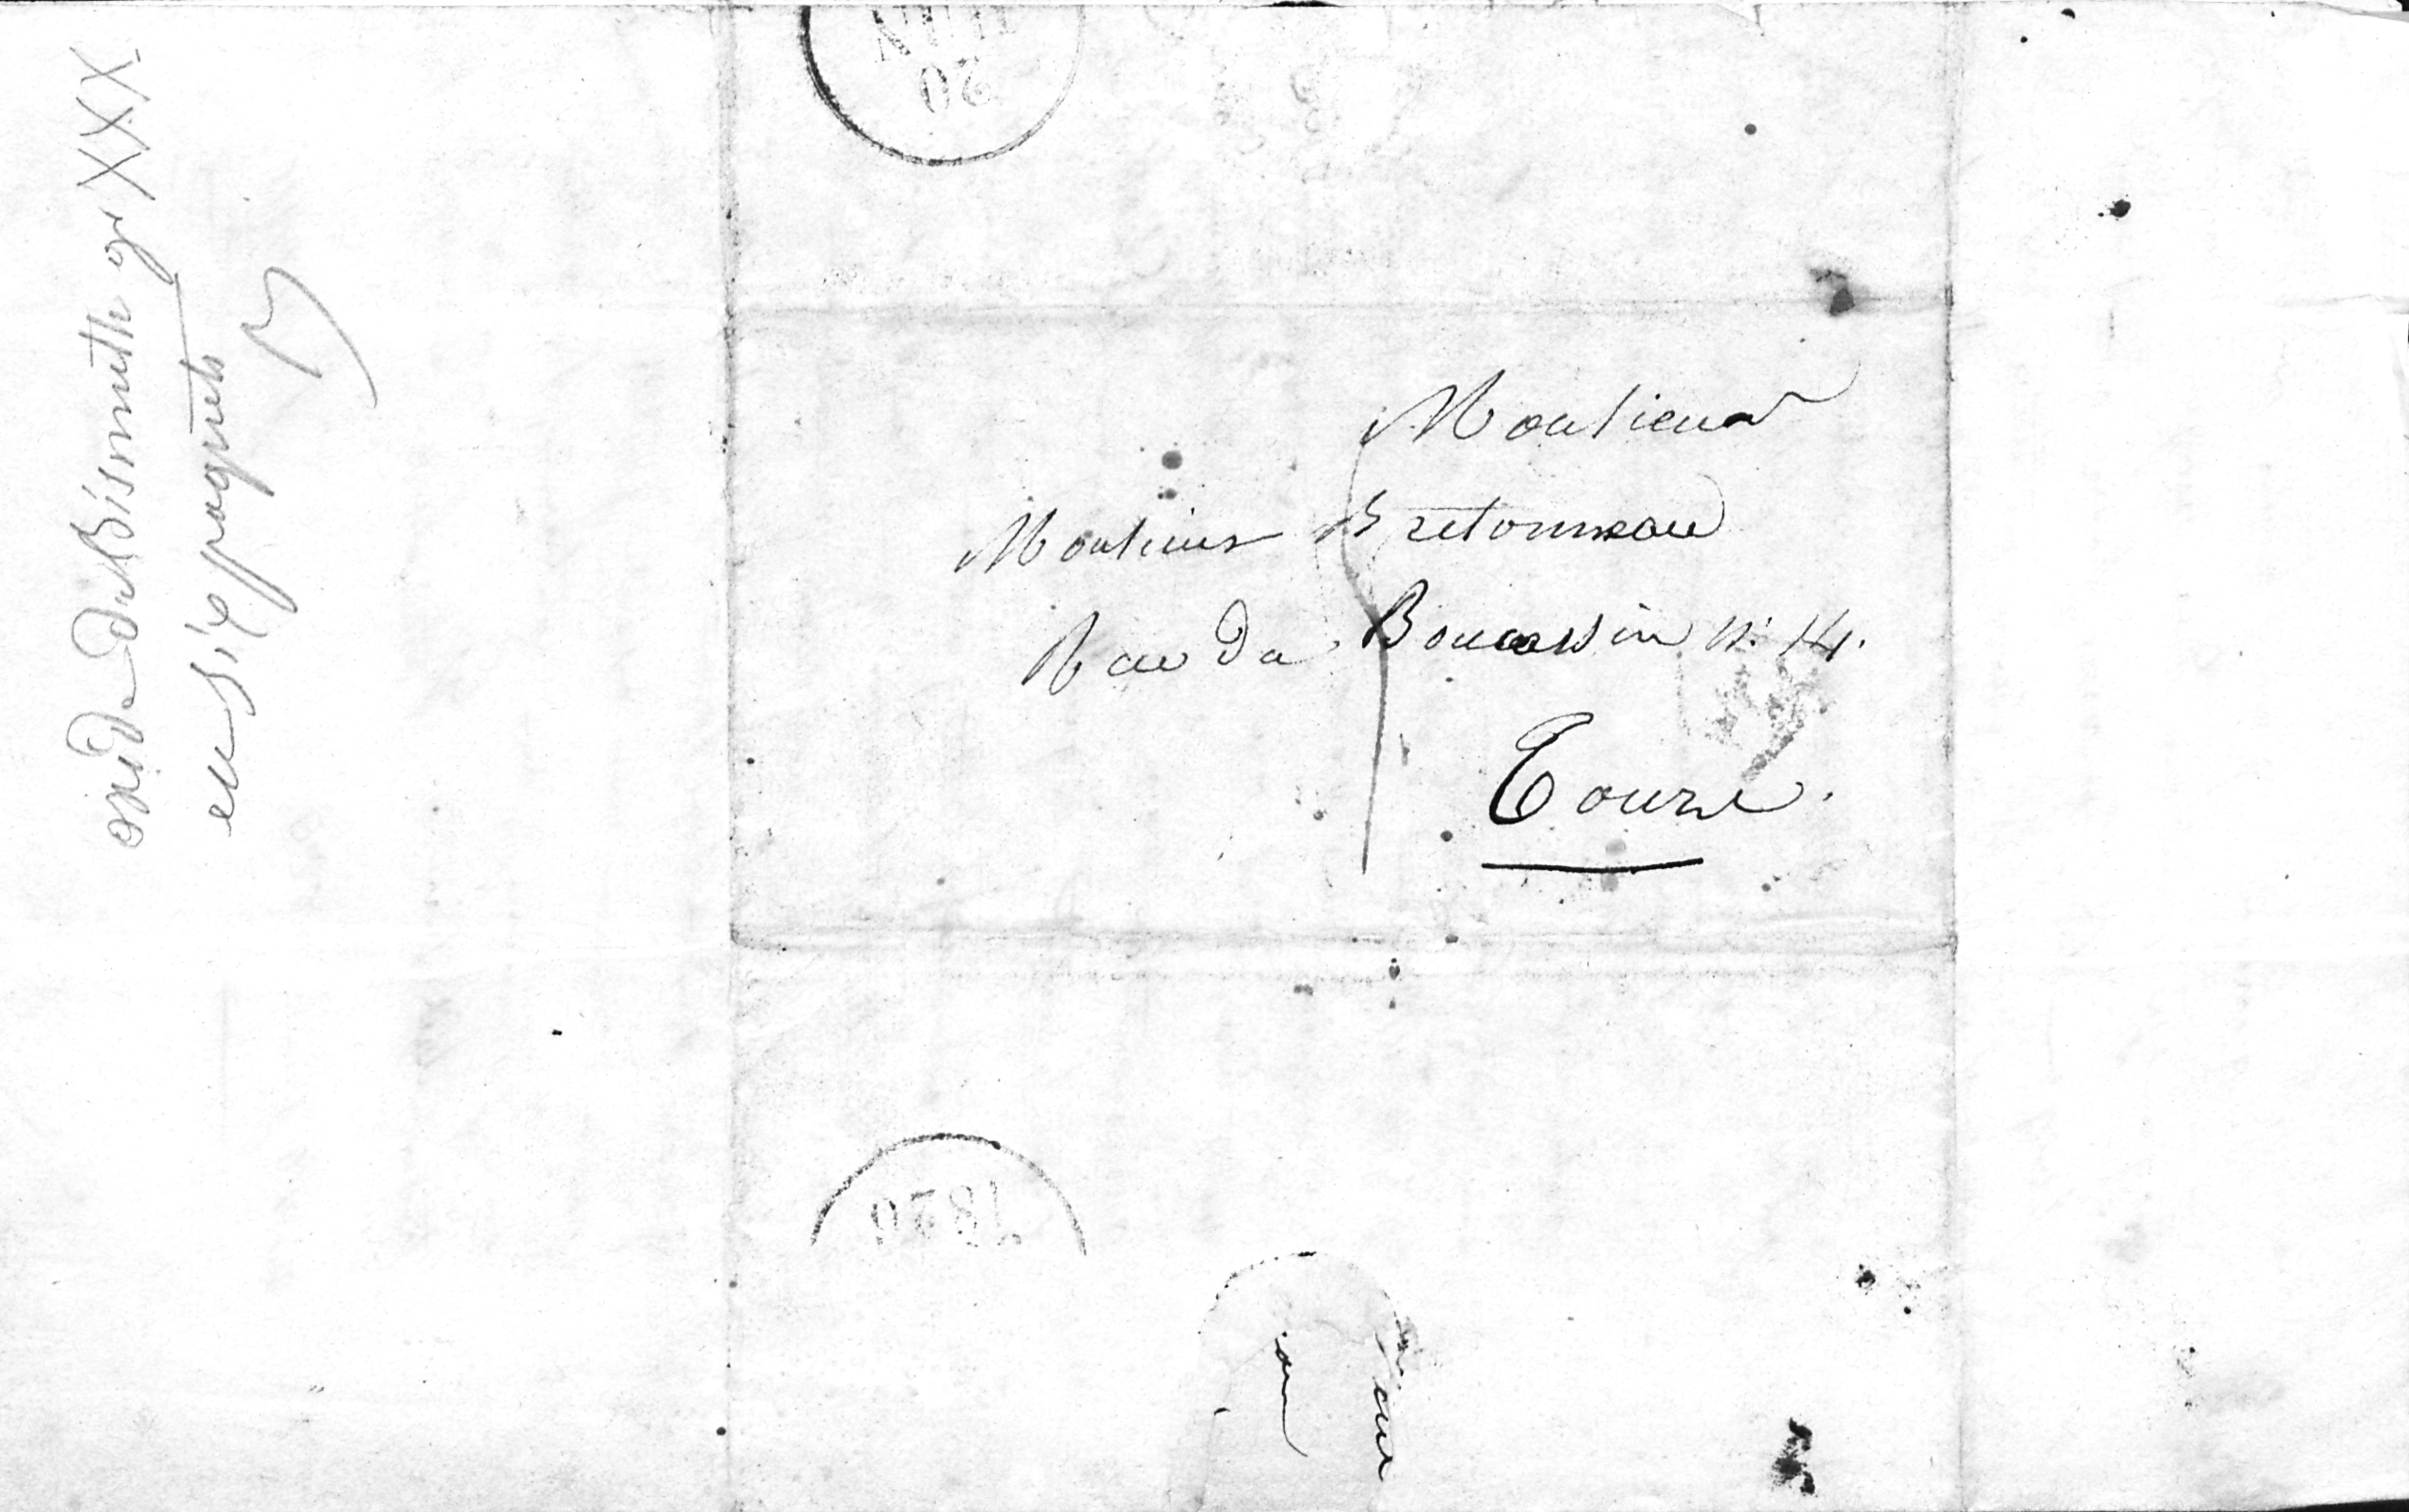 oxide de Bismuth gr XXX
en six paquets
20
JUIN
Monsieur
Monsieur Bretonneau
Rue du Boucassin n° 14.
Tours.
1826